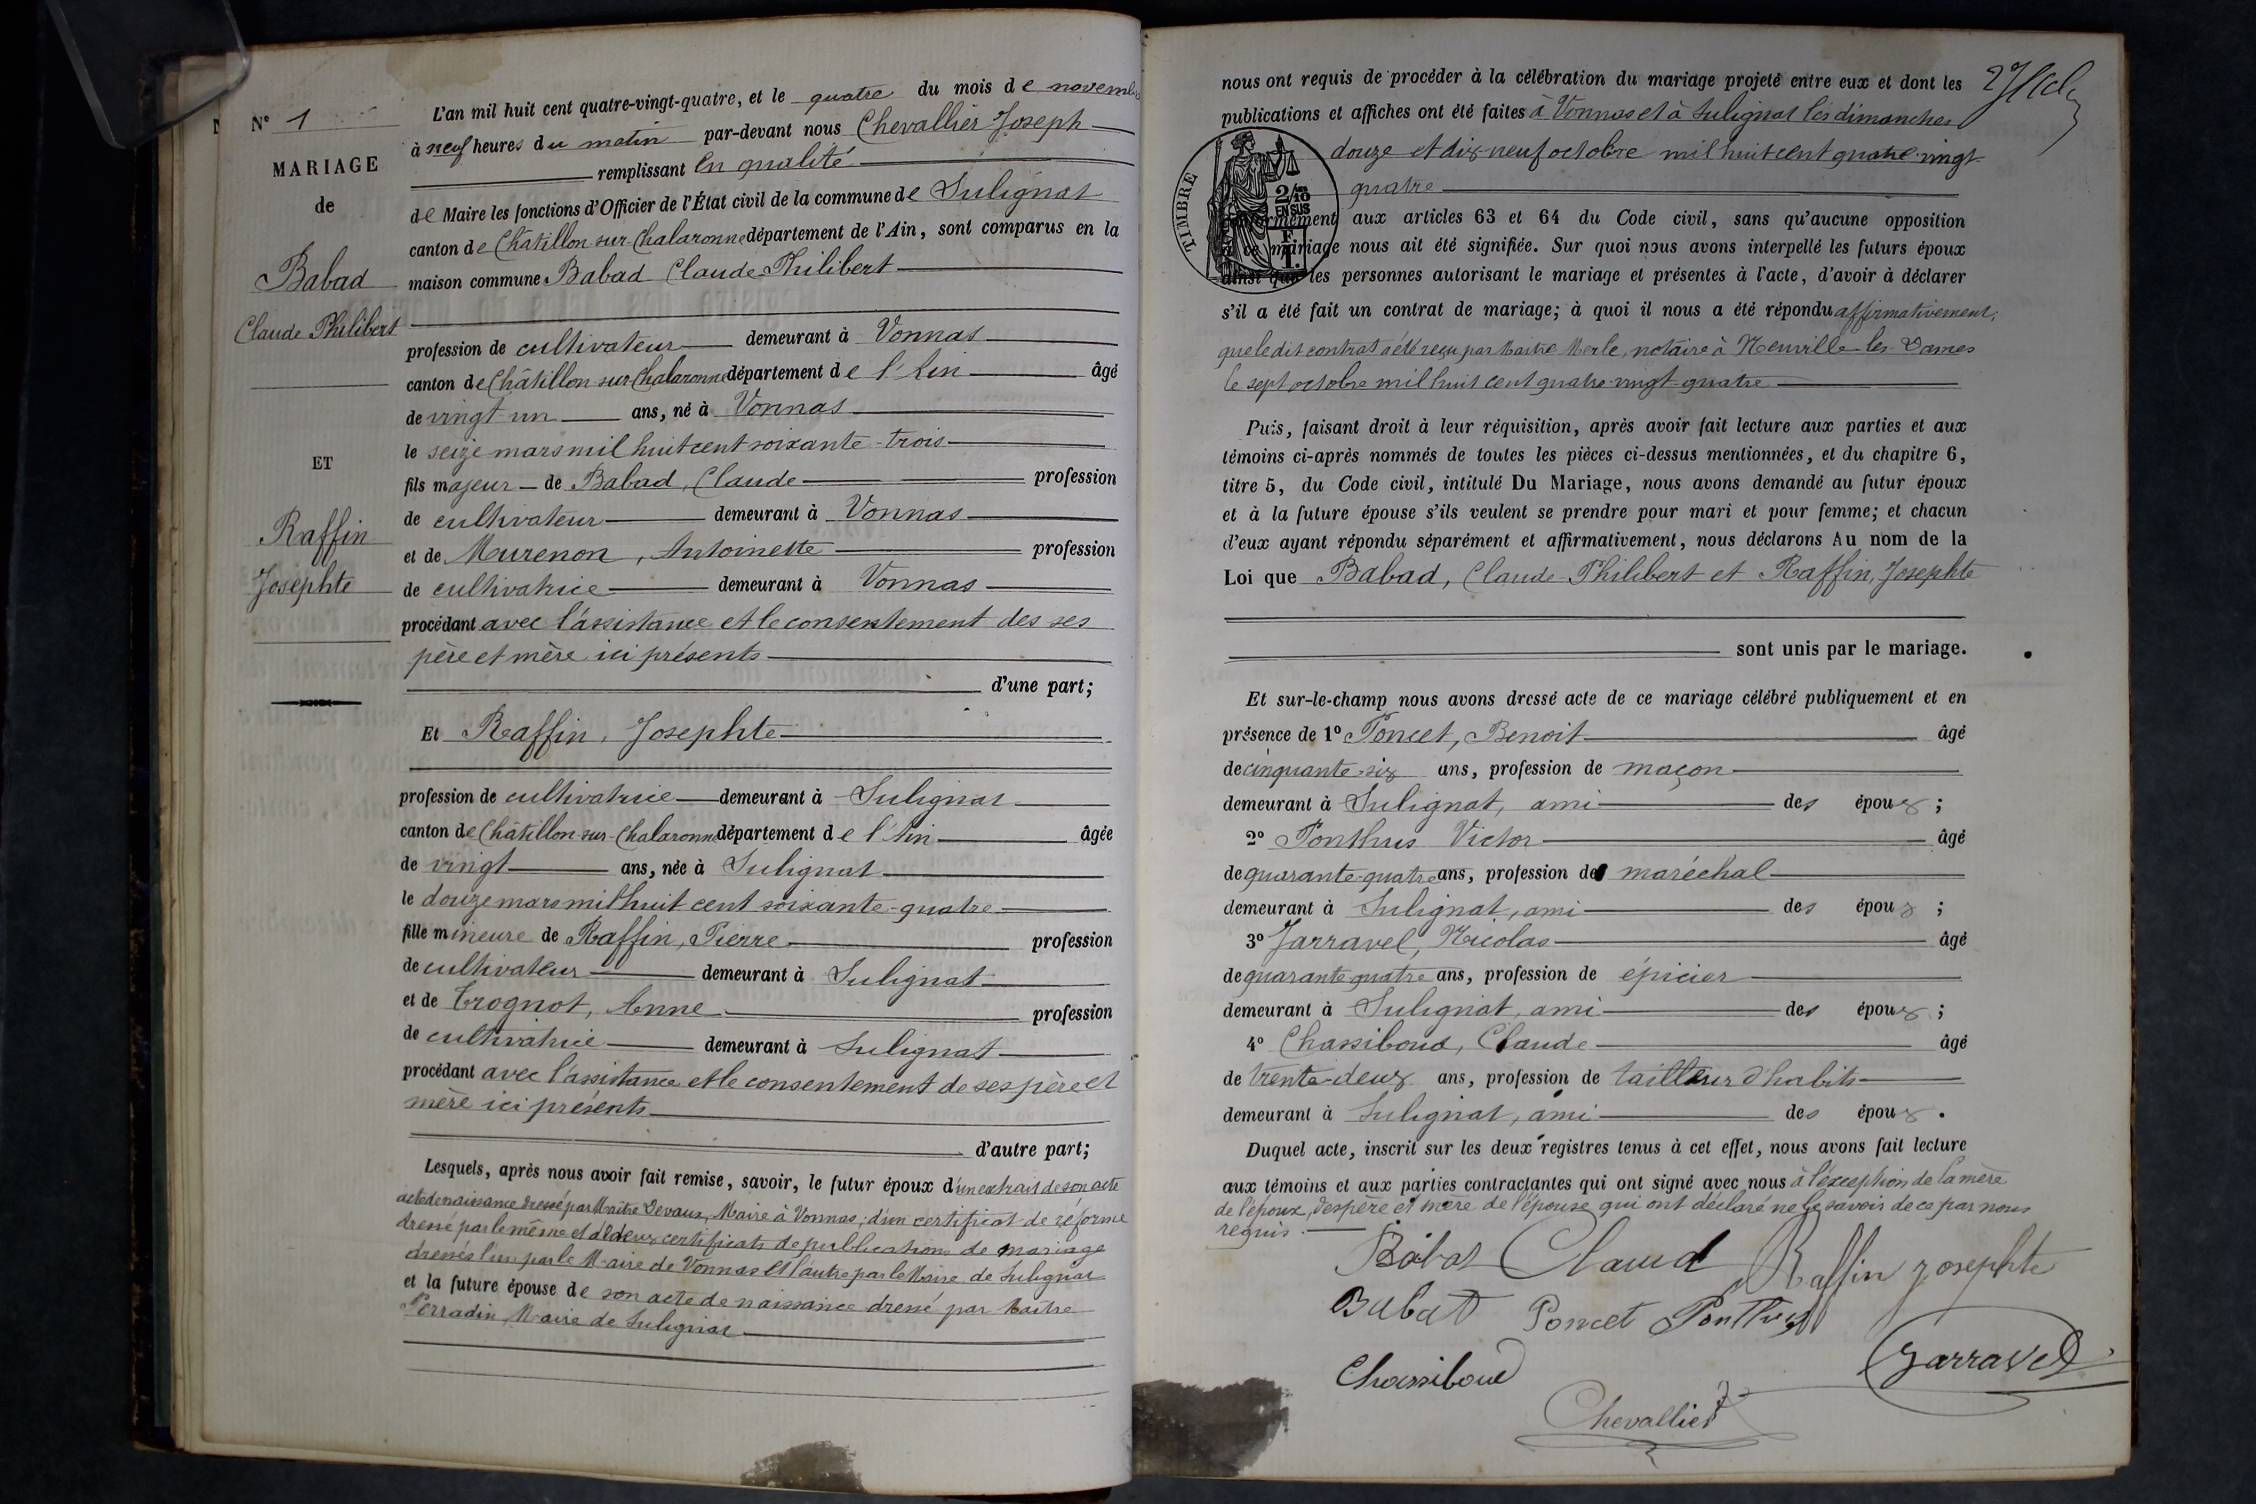 N° 1
MARIAGE
de
Babad
Claude Philibert
ET
Raffin
Josephte
L'an mil huit cent quatre-vingt-quatre, et le quatre du mois de novembre
à neuf heures du matin par-devant nous Chevallier Joseph
remplissant en qualité
de Maire les fonctions d'Officier de l'État civil de la commune de Sulignat
canton de Châtillon-sur-Chalaronne département de l'Ain, sont comparus en la
maison commune Babad Claude-Philibert
profession de cultivateur demeurant à Vonnas
canton de Châtillon-sur-Chalaronne département de l'Ain âgé
de vingt-un ans, né à Vonnas
le seize mars mil huit cent soixante-trois
fils majeur de Babad, Claude profession
de cultivateur demeurant à Vonnas
et de Murenon, Antoinette profession
de cultivatrice demeurant à Vonnas
procédant avec l'assistance et le consentement des ses
père et mère ici présents
d'une part;
Et Raffin, Josephte
profession de cultivatrice demeurant à Sulignat
canton de Châtillon-sur-Chalaronne département de l'Ain âgée
de vingt ans, née à Sulignat
le douze mars mil huit cent soixante-quatre
fille mineure de Raffin, Pierre profession
de cultivateur demeurant à Sulignat
et de Trognot, Anne profession
de cultivatrice demeurant à Sulignat
procédant avec l'assistance et le consentement de ses père et
mère ici présents
d'autre part;
Lesquels, après nous avoir fait remise, savoir, le futur époux d'un extrait de son acte
acte de naissance dressé par Maître Devaux, Maire à Vonnas; d'un certificat de réforme
dressé par le même et de deux certificats de publications de mariage
dressés l'un par le Maire de Vonnas et l'autre par le Maire de Sulignat
et la future épouse de son acte de naissance dressé par Maître
Perradin, Maire de Sulignat
nous ont requis de procéder à la célébration du mariage projeté entre eux et dont les
publications et affiches ont été faites à Vonnas et à Sulignat les dimanches
douze et dix neuf octobre mil huit cent quatre-vingt
quatre
TIMBRE
2/10 EN SUS
F
1.
conformément aux articles 63 et 64 du Code civil, sans qu'aucune opposition
à ce mariage nous ait été signifiée. Sur quoi nous avons interpellé les futurs époux
ainsi que les personnes autorisant le mariage et présentes à l'acte, d'avoir à déclarer
s'il a été fait un contrat de mariage; à quoi il nous a été répondu affirmativement;
que le dit contrat a été reçu par Maître Merle, notaire à Neuville-les-Dames
le sept octobre mil huit cent quatre-vingt-quatre
Puis, faisant droit à leur réquisition, après avoir fait lecture aux parties et aux
témoins ci-après nommés de toutes les pièces ci-dessus mentionnées, et du chapitre 6,
titre 5, du Code civil, intitulé Du Mariage, nous avons demandé au futur époux
et à la future épouse s'ils veulent se prendre pour mari et pour femme; et chacun
d'eux ayant répondu séparément et affirmativement, nous déclarons Au nom de la
Loi que Babad, Claude-Philibert et Raffin, Josephte
sont unis par le mariage.
Et sur-le-champ nous avons dressé acte de ce mariage célébré publiquement et en
présence de 1° Poncet, Benoit âgé
de cinquante-six ans, profession de maçon
demeurant à Sulignat, ami des époux;
2° Ponthus Victor âgé
de quarante-quatre ans, profession de maréchal
demeurant à Sulignat, ami des époux;
3° Jarravel, Nicolas âgé
de quarante quatre ans, profession de épicier
demeurant à Sulignat, ami des époux;
4° Chassiboud, Claude âgé
de trente-deux ans, profession de tailleur d'habits
demeurant à Sulignat, ami des époux.
Duquel acte, inscrit sur les deux registres tenus à cet effet, nous avons fait lecture
aux témoins et aux parties contractantes qui ont signé avec nous à l'exception de la mère
de l'époux, des père et mère de l'épouse qui ont déclaré ne le savoir de ce par nous
requis.
Babat Claud Raffin Josephte
Babat Poncet Ponthus
Jarravel
Chassiboud
Chevallier J